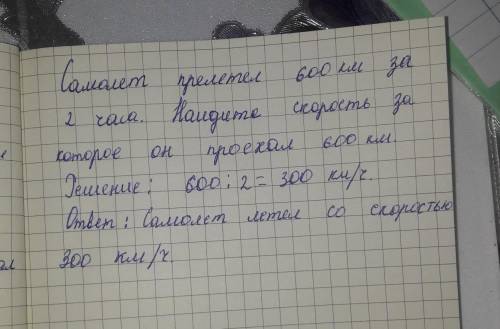 Самолет прелетел 600 км за
2 часа. Наидите скорость за
которое он проехал 600 км.
Решение: 600 : 2 = 300 км/ч.
Ответ: Самолет летел со скоростью
300 км/ч